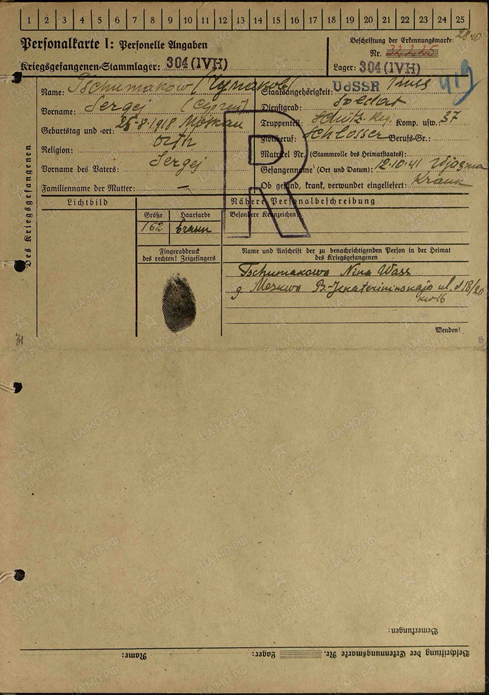 1 2 3 4 5 6 7 8 9 10 11 12 13 14 15 16 17 18 19 20 21 22 23 24 25
Personalkarte I: Personelle Angaben
Kriegsgefangenen-Stammlager: 304 (IV H)
Beschriftung der Erkennungsmarke
Nr.
Lager: 304 (IV H)
Des Kriegsgefangenen
Name: Tschumakow
Vorname: Sergej
Geburtstag und -ort: 25-8-1918 Moskau
Religion: orth
Vorname des Vaters: Sergej
Familienname der Mutter: —
Staatsangehörigkeit: UdSSR Russ
Dienstgrad: Soldat
Truppenteil: Schütz. Reg. 37 Komp. usw.
Zivilberuf: Schlosser Berufs-Gr.:
Matrikel Nr. (Stammrolle des Heimatstaates):
Gefangennahme (Ort und Datum): 12.10.41 Wjasma
Ob gesund, krank, verwundet eingeliefert: Krank
R
Lichtbild
Nähere Personalbeschreibung
Größe
Haarfarbe
Besondere Kennzeichen:
162
braun
Fingerabdruck
des rechten! Zeigefingers
Name und Anschrift der zu benachrichtigenden Person in der Heimat
des Kriegsgefangenen
Tschumakowa Nina Wass
g. Moskwa B-Jekaterininskaja ul. d 18/20
kw 16
Wenden!
Bemerkungen:
Beschriftung der Erkennungsmarke Nr. Lager: Name: